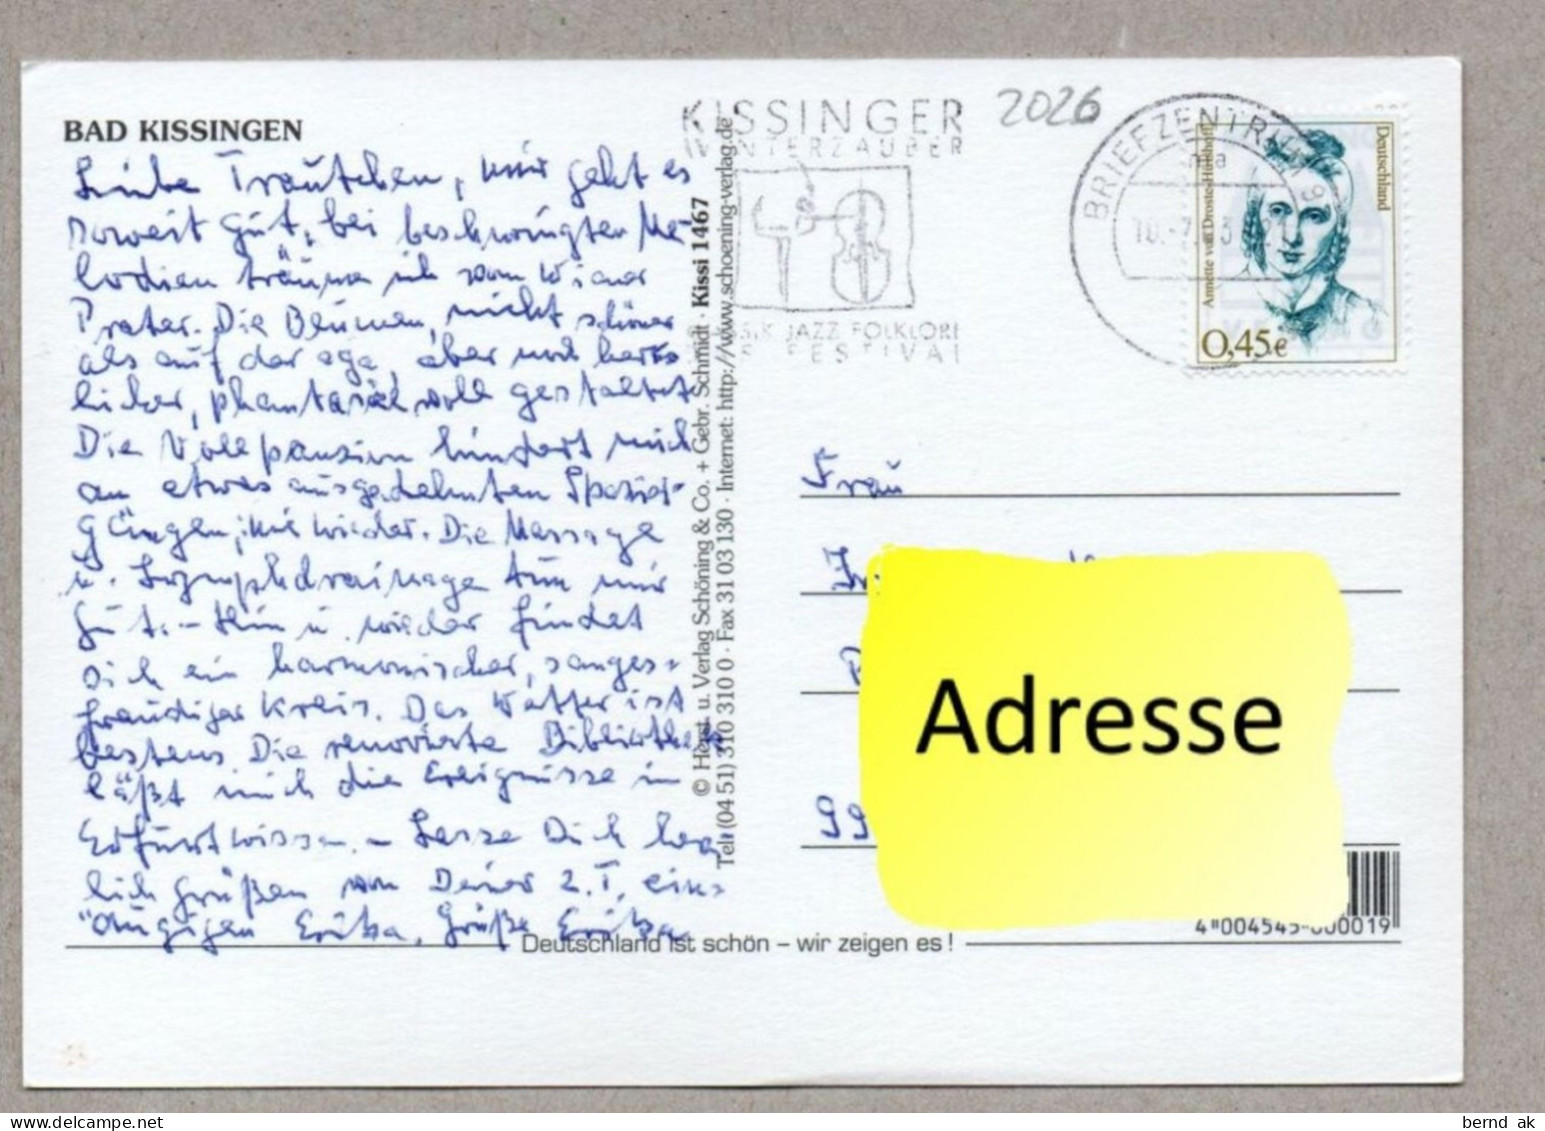 BAD KISSINGEN
Liebe Trautchen, mir geht es
soweit gut, bei beschwingten Me-
lodien träume ich vom Wiener
Prater. Die Blumen, nicht schöner
als auf der ega, aber noch herr-
licher, phantasievoll gestaltet.
Die Vollpension hindert mich
an etwas ausgedehnten Spazier-
gängen, nie wieder. Die Massage
u. Lymphdrainage tun mir
gut. - Hin u. wieder findet
sich ein harmonischer, sanges-
freudiger Kreis. Das Wetter ist
bestens. Die renovierte Bibliothek
läßt mich die Ereignisse in
Erfurt wissen. - Lasse Dich herz
lich grüßen von Deiner z. T. ein-
äugigen Erika, Grüße Erika
© Herst. u. Verlag Schöning & Co. + Gebr. Schmidt · Kissi 1467
Tel. (04 51) 310 310 0 · Fax 31 03 130 · Internet: http://www.schoening-verlag.de
KISSINGER
WINTERZAUBER
JAZZ FOLKLORE
FESTIVAL
2026
BRIEFZENTRUM 9
Annette von Droste-Hülshoff
Deutschland
0,45€
Frau
Adresse
99
4 004545-000019
Deutschland ist schön – wir zeigen es !
bernd ak